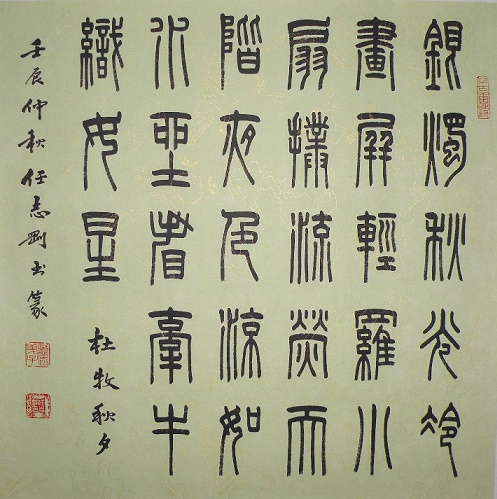 銀燭秋光冷
畫屏輕羅小
扇撲流熒天
階夜色涼如
水坐看牽牛
織女星
杜牧秋夕
壬辰仲秋任志剛書篆